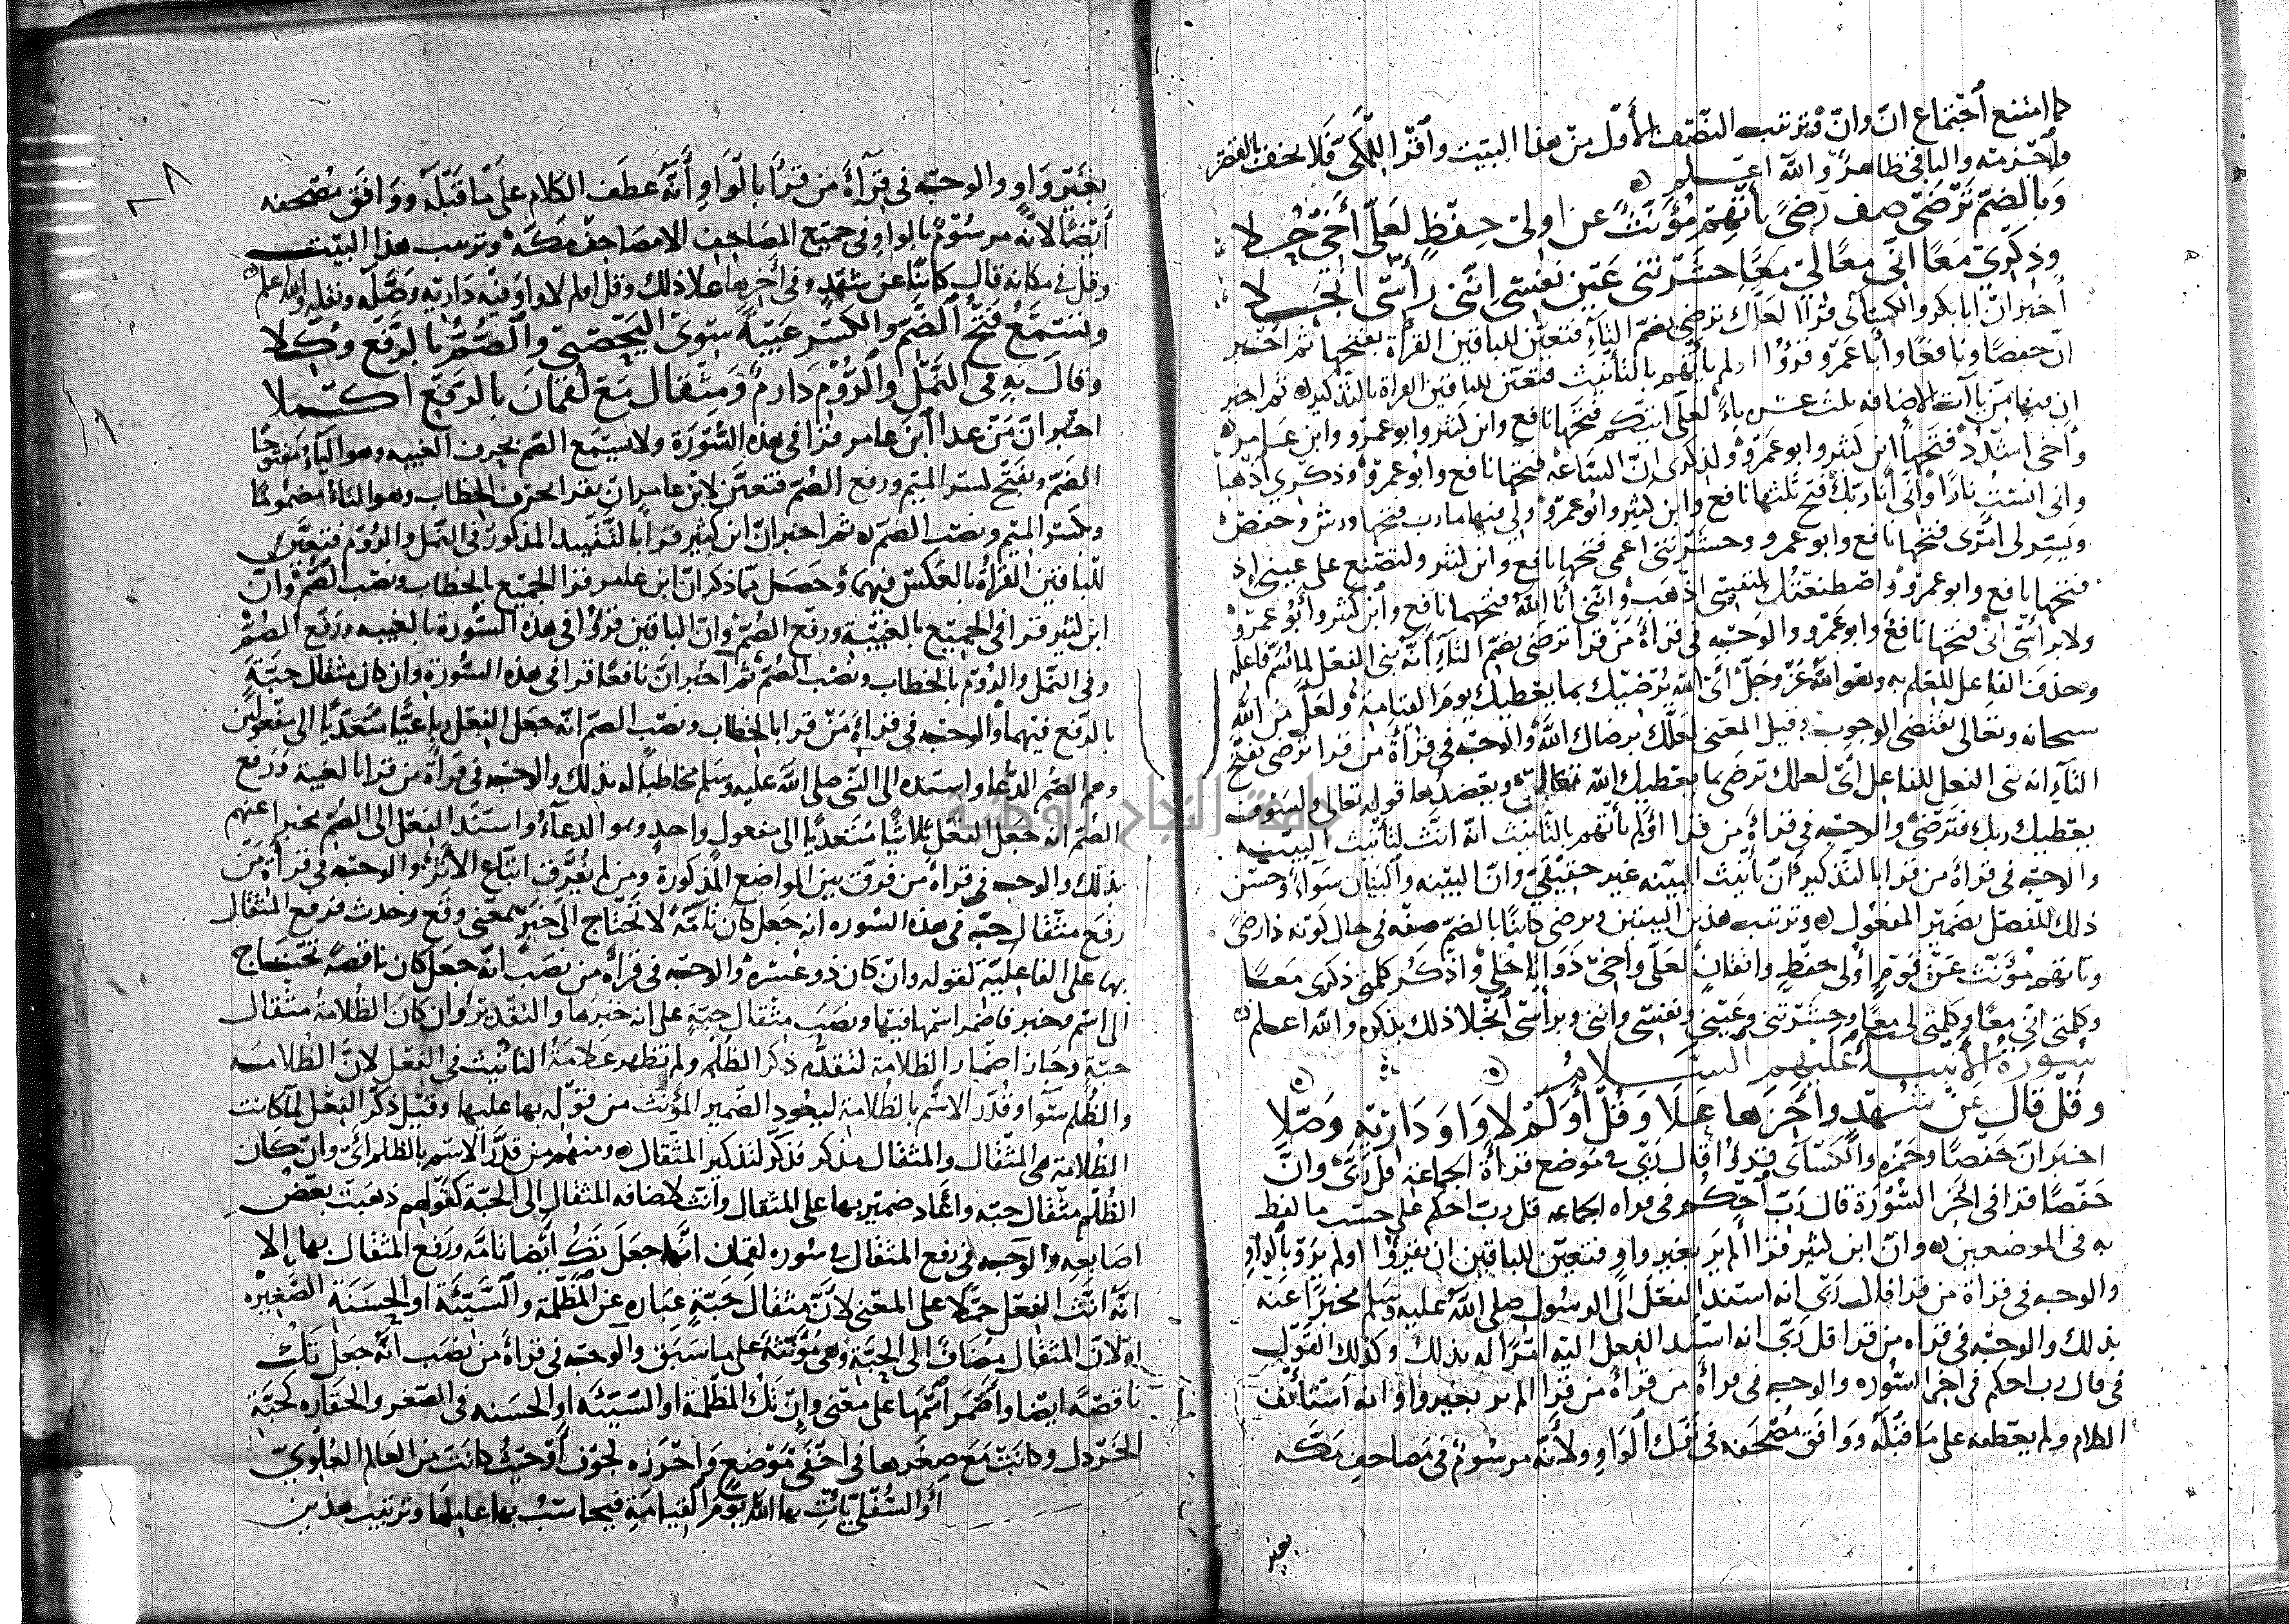 كما امتنع اجتماع انّ وانّ وترتيب النصف الأوّل من هذا البيت واقرا للمكي فلا يخف بالقصر
واجزمه والباقي ظاهر والله اعلم
وبالضمّ ترضى صف رضىً يأتهم مؤنث عن اولي حفظٍ لعلّي أخي حُلا
وذكري معًا إنّي معًا لي معًا حشرتني عين نفسي انّني رأسي انجلا
أخبر انّ ابا بكر والكسائي قرآ لعلّك ترضى بضمّ التاء فتعيّن للباقين القراة بفتحها ثم اخبر
انّ حفصًا ونافعًا وأبا عمرو قرؤا اولم تأتهم بالتأنيث فتعيّن للباقين القراة بالتذكير ثم اخبر
ان فيها من ياآت الاضافه ثلث عشره ياءً لعلّي اتيكم فتحها نافع وابن كثير وابو عمرو وابن عامر
وأخي اشدُد فتحها ابن كثير وابو عمرو ولذكري انّ الساعة فتحها نافع وابو عمرو وذكري اذهبا
واني انست نارًا وانّي أنا ربّك فتح ثلثها نافع وابن كثير وابو عمرو ولي فيها مارب فتحها ورش وحفص
ويسّر لي امري فتحها نافع وابو عمرو وحشرتني اعمى فتحها نافع وابن كثير ولتصنع على عيني إذ
فتحها نافع وابو عمرو واصطنعتك لنفسي اذهب وانّني أنا الله فتحهما نافع وابن كثير وأبو عمرو
ولا برأسي انّي فتحها نافع وابو عمرو والوجه في قراة من قرا ترضى بضمّ التاء أنّه بنى الفعل لما لم يسمّ فاعله
وحذف الفاعل للعلم به وهو الله عزّ وجلّ أي الله يُرضيك بما يعطيك يوم القيامة ولعلّ من الله
سبحانه وتعالى تقتضي الوجوب وقيل المعنى لعلّك برضاك الله والوجه في قراة من قرا ترضى بفتح
التاء انه بنى الفعل للفاعل أي لعلك ترضى بما يعطيك الله تعالى ويعضدها قوله تعالى ولسوف
يعطيك ربك فترضى والوجه في قراة من قرا أولم تأتهم بالتأنيث انّه انّث لتأنيث البيّنه
والوجه في قراة من قرا بالتذكير أنّ تأنيث البيّنه غير حقيقي وانّ البيّنه والبيان سواءً وحسّن
ذلك الفصل بضمير المفعول وترتيب هذين البيتين وترضى كائنًا بالضمّ صفه في حال كونه ذا رضىً
وتاتهم مؤنّث عن قومٍ أولي حفظٍ واتقانٍ لعلّي وأخي ذوا حُليٍ واذكر كلمتي ذكري معًا
وكلمتي انّي معًا وكلمتي لي معًا وحشرتني وعيني ونفسي وانني وبرأسي انجلا ذلك بذكره والله اعلم
سورة الأنبيا عليهم السلام
وقُل قال عن شُهدٍ وآخرها علا وقل أولم لا واو داريه وصّلا
اخبر انّ حفصًا وحمزه والكسائي قرؤا قال ربّي في موضع قراة الجماعة قل ربّي وانّ
حفصًا قرا في اخر السّورة قال ربّ احكم في قراه الجماعه قل ربّ احكم على حسب ما لفظ
به في الموضعين وانّ ابن كثير قرا ألم ير بغير واوٍ فتعيّن للباقين ان يقرؤا اولم ير بالواو
والوجه في قراة من قرا قال ربّي انه اسند الفعل الى الرسول صلى الله عليه وسلم مخبرًا عنه
بذلك والوجه في قراه من قرا قل ربّي انه اسند الفعل اليه امرًا له بذلك وكذلك القول
في قال رب احكم في اخر السّوره والوجه في قراة من قراة من قرا الم ير بغير واو انه استأنف
الكلام ولم يعطفه على ما قبله ووافق مصحفه في ترك الواو ولأنّه مرسوم في مصاحف مكّه
بغير
٨٨
بغير واوٍ والوجه في قرآة من قرأ بالواو أنّه عطف الكلام على ما قبله ووافق مصحفه
أيضًا لانّه مرسوم بالواو في جميع المصاحف الا مصاحف مكّة وترتيب هذا البيت
وقل في مكانه قال كائنًا عن شهدٍ وفي آخرها علا ذلك وقل اولم لا واو فيه داريه وصّله ونقله والله اعلم
وتسمع فتح الضّمّ والكسر غيبةً سوى اليحصبي والصّمّ بالرفع وُكّلا
وقال به في النّمل والرّوم دارم ومثقال مع لقمان بالرفع اكملا
اخبر انّ من عدا ابن عامر قرا في هذه السّورة ولا يسمع الصّم بحرف الغيبه وهو الياء مفتوحًا
الضمّ وبفتح كسر الميم ورفع الصّم فتعيّن لابن عامر ان يقرا بحرف الخطاب وهو التاء مضمومًا
وكسر الميم ونصب الصم ثم اخبر انّ ابن كثير قرا بالتقييد المذكور في النّمل والرّوم فتعيّن
للباقين القراة بالعكس فيهما وحصل ممّا ذكر انّ ابن عامر قرا الجميع بالخطاب ونصب الصّم وانّ
ابن كثير قرا في الجميع بالغيبة ورفع الصّم وانّ الباقين قرؤا في هذه السّورة بالغيبه ورفع الصّم
وفي النّمل والرّوم بالخطاب ونصب الصّم ثم اخبر انّ نافعًا قرا في هذه السّورة وان كان مثقال حبّةٍ
بالرفع فيهما والوجه في قراة من قرا بالخطاب ونصب الصّم انّه جعل الفعل رباعيًّا متعدّيًا الى مفعولين
وهم الصّم الدّعا واسنده الى النّبي صلى الله عليه وسلم مخاطبًا له بذلك والوجه في قراة من قرا بالغيبة ورفع
الصّم انه جعل الفعل ثلاثيًّا متعديًا الى مفعول واحدٍ وهو الدعآء واسند الفعل الى الصّم مخبرًا عنهم
بذلك والوجه في قراة من فرّق بين المواضع المذكورة ومن لم يُفرّق اتباع الأثر والوجه في قراة من
رفع مثقال حبّه في هذه السّوره انه جعل كان تامّة لا تحتاج الى خبر بمعنى وقع وحدث فرفع المثقال
بها على الفاعليّة كقوله وان كان ذو عسرة والوجه في قراة من نصب انّه جعل كان ناقصةً تحتاج
الى اسم وخبر فاضمر اسمها فيها ونصب مثقال حبّةٍ على انه خبرها والتقدير وان كان الظُلامة مثقال
حبّةٍ وجاز اضمار الظلامة لتقدّم ذكر الظلم ولم تظهر علامة التأنيث في الفعل لانّ الظُلامه
والظُلم سوآ وقدّر الاسم بالظلامة ليعود الضمير المؤنث من قوله بها عليها وقيل ذكّر الفعل لمّا كانت
الظُلامة هي المثقال والمثقال مذكر فذكّر لتذكير المثقال ومنهم من قدّر الاسم بالظلم أي وان كان
الظُلم مثقال حبّه واعاد ضمير بها على المثقال وانّث لاضافه المثقال الى الحبّة كقولهم ذهبت بعض
اصابعه والوجه في رفع المثقال في سوره لقمان انّه جعل تك أيضًا تامّه ورفع المثقال بها إلا
انّه انّث الفعل حملًا على المعنى لانّ مثقال حبّةٍ عباره عن المظلمة والسّيّئة او الحسنة الصّغيره
او لانّ المثقال مضاف الى الحبّة وهي مؤنّثة على ما سبق والوجه في قراة من نصب انّه جعل تك
ناقصةً ايضا واضمر اسمها على معنى وان تك المظلمة او السّيّئه او الحسنه في الصّغر والحقاره كحبّة
الخردل وكانت مع صغرها في اخفى موضعٍ واحرزه كجوف أو حيث كانت من العالم العُلويّ
أو السّفلي يأت بها الله يوم القيامة فيحاسب بها عاملها وترتيب هذين